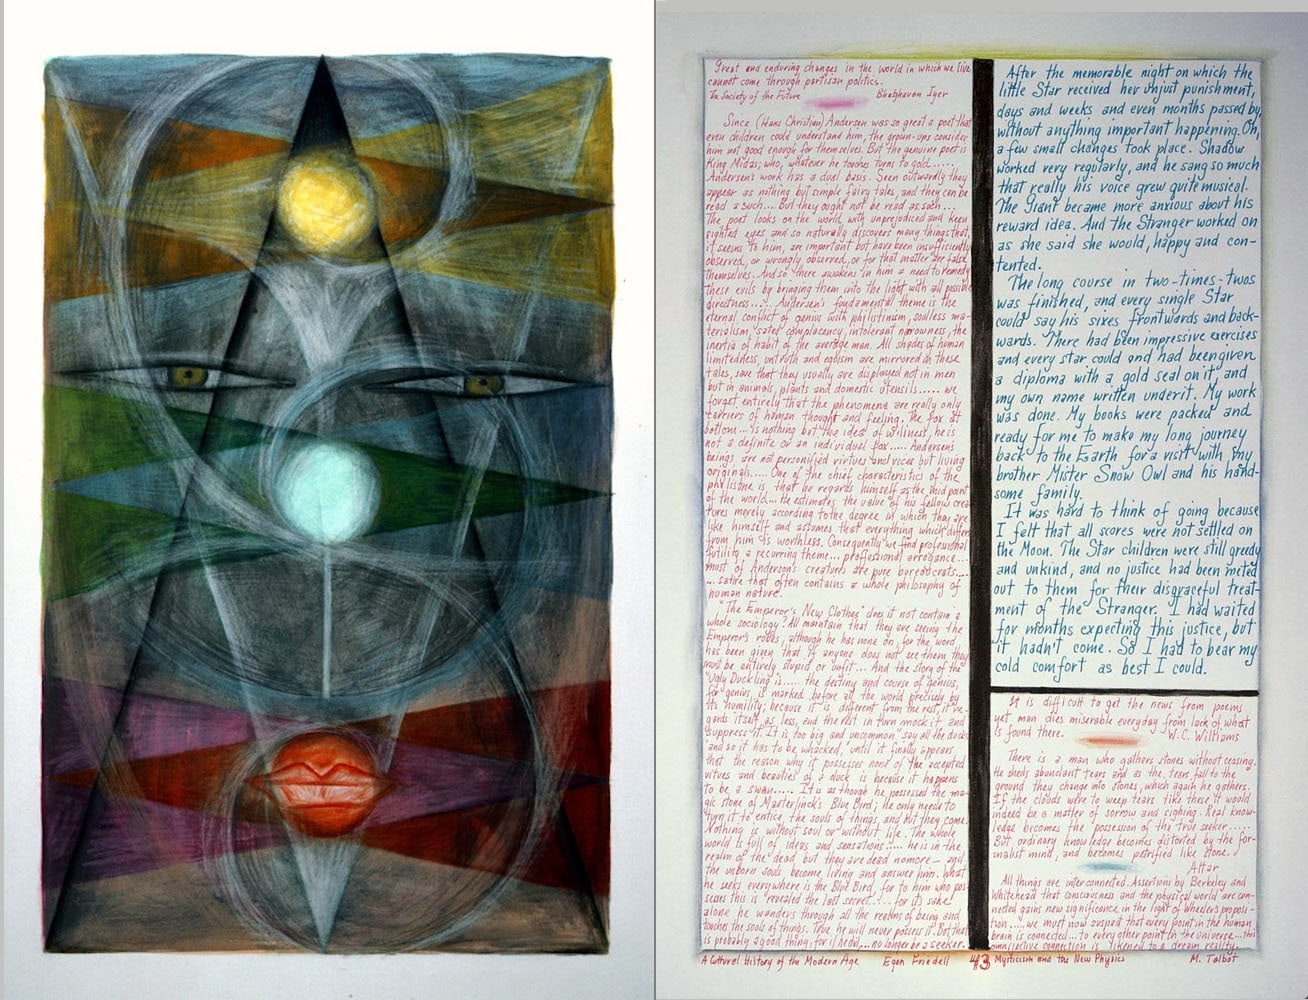 Great and enduring changes in the world in which we live
cannot come through partisan politics.
The Society of the Future Iyer
Since (Hans Christian) Andersen was so great a poet that
even children could understand him, the grown-ups consider
him not good enough for themselves. But the genuine poet is
King Midas; who, whatever he touches turns to gold......
Andersen's work has a dual basis. Seen outwardly they
appear as nothing but simple fairy tales, and they can be
read a such.... But they ought not be read as such...
The poet looks on the world with unprejudiced and keen
sighted eyes and so naturally discovers many things that,
it seems to him, are important but have been insufficiently
observed, or wrongly observed, or for that matter are false
themselves. And so there awakens in him a need to remedy
these evils by bringing them into the light with all possible
directness..... Andersen's fundamental theme is the
eternal conflict of genius with philistinism, soulless ma-
terialism, sated complacency, intolerant narrowness, the
inertia of habit of the average man. All shades of human
limitedness, untruth and egoism are mirrored in these
tales, save that they usually are displayed not in men
but in animals, plants and domestic utensils..... we
forget entirely that the phenomena are really only
carriers of human thought and feeling. The fox at
bottom... is nothing but the idea of wiliness, he is
not a definite or an individual fox..... Andersens
beings are not personified virtues and vices but living
originals.... One of the chief characteristics of the
philistine is that he regards himself as the mid point
of the world... He estimates the value of his fellow crea
tures merely according to the degree in which they are
like himself and assumes that everything which differs
from him is worthless. Consequently we find professional
futility a recurring theme... proffessional arrogance...
most of Anderson's creatures are pure bureaucrats....
... satire that often contains a whole philosophy of
human nature.
"The Emperor's New Clothes" does it not contain a
whole sociology? All maintain that they are seeing the
Emperor's robes, although he has none on, for the word
has been given that if anyone does not see them they
must be entirely stupid or unfit... And the story of the
"Ugly Duckling" is...... the destiny and course of genius,
for genius is marked before all the world precisely by
its humility; because it is different from the rest, it re-
gards itself as less, and the rest in turn mock it and
suppress it. "It is too big and uncommon" say all the ducks
'and so it has to be whacked,' until it finally appears
that the reason why it possesses none of the accepted
virtues and beauties of a duck is because it happens
to be a swan..... It is as though he possessed the ma-
gic stone of Masterlinck's Blue Bird; he only needs to
turn it to entice the souls of things, and out they come.
Nothing is without soul or without life. The whole
world is full of ideas and sensations.... he is in the
realm of the dead, but they are dead nomore — and
the unborn souls become living and answer him. What
he seeks everywhere is the Blue Bird, for to him who pos-
sesses this is 'revealed the last secret'.... for its sake
alone he wanders through all the realms of being and
touches the souls of things. True he will never possess it. But that
is probably a good thing, for if he did,... no longer be a seeker.
A Cultural History of the Modern Age Egon Friedell
43
After the memorable night on which the
little Star received her unjust punishment,
days and weeks and even months passed by
without anything important happening. Oh,
a few small changes took place. Shadow
worked very regularly, and he sang so much
that really his voice grew quite musical.
The Giant became more anxious about his
reward idea. And the Stranger worked on
as she said she would, happy and con-
tented.
The long course in two-times-twos
was finished, and every single Star
could say his sixes frontwards and back-
wards. There had been impressive exercises
and every star could and had been given
a diploma with a gold seal on it, and
my own name written underit. My work
was done. My books were packed and
ready for me to make my long journey
back to the Earth for a visit with my
brother Mister Snow Owl and his hand-
some family.
It was hard to think of going because
I felt that all scores were not settled on
the Moon. The Star children were still greedy
and unkind, and no justice had been meted
out to them for their disgraceful treat-
ment of the Stranger. I had waited
for months expecting this justice, but
it hadn't come. So I had to bear my
cold comfort as best I could.
It is difficult to get the news from poems
yet man dies miserable everyday from lack of what
is found there. W.C. Williams
There is a man who gathers stones without ceasing.
He sheds abundant tears and as the tears fall to the
ground they change into stones, which again he gathers.
If the clouds were to weep tears like these it would
indeed be a matter of sorrow and sighing. Real know-
ledge becomes the possession of the true seeker......
But ordinary knowledge becomes distorted by the for-
malist mind, and becomes petrified like stone.
Attar
All things are interconnected. Assertions by Berkeley and
Whitehead that consciousness and the physical world are con-
nected gains new significance in the light of Wheeler's proposi-
tion..... we must now suspect that every point in the human
brain is connected... to every other point in the universe... this
omnijective connection is likened to a dream reality.
Mysticism and the New Physics M. Talbot